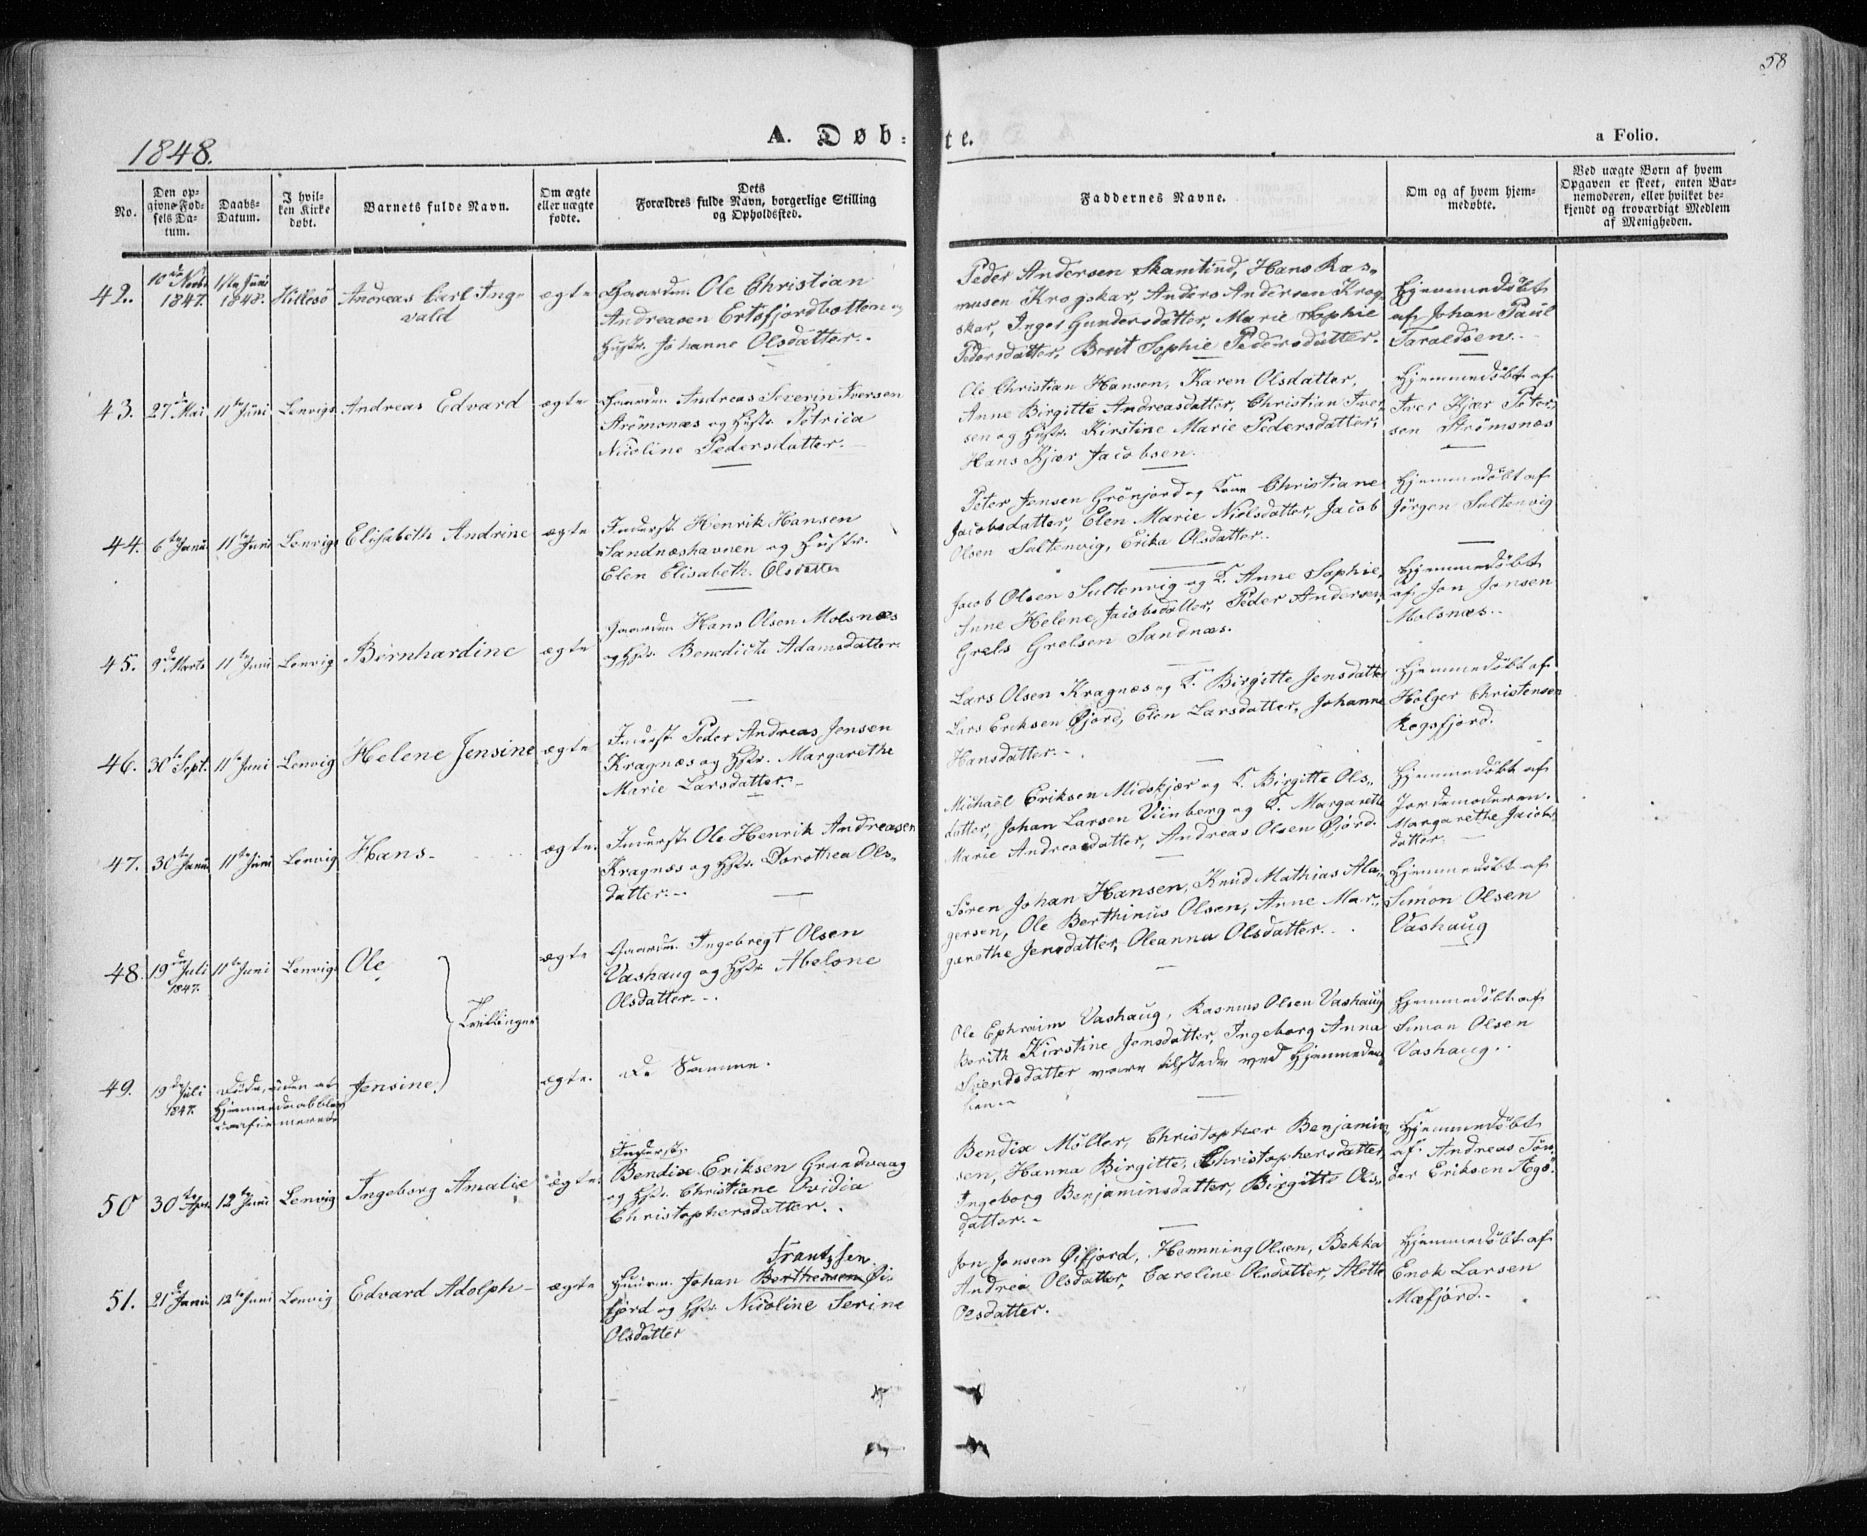 58
1848.
A. Døb-
te.
a Folio.
No.
Den op-
givne Fød-
sels Da-
tum.
Daabs-
Datum.
I hvil-
ken Kirke
døbt.
Barnets fulde Navn.
Om ægte
eller uægte
fødte.
Dets
Forældres fulde Navn, borgerlige Stilling
og Opholdssted.
Faddernes Navne.
Om og af hvem hjem-
medøbte.
Ved uægte Børn af hvem
Opgaven er skeet, enten Bar-
nemoderen, eller hvilket be-
kjendt og troværdigt Medlem
af Menigheden.
42. 10de Novbr 1847. 11te Juni 1848. Hillesö Andreas Carl Ing-
vald
ægte Gaardm. Ole Christian
Andreasen Ertefjordbotten og
Hustr. Johanne Olsdatter.
Peder Andersen Skamtind, Hans Ras-
musen Krogskar, Anders Andersen Krog-
skar, Inger Gundersdatter, Marie Sophie
Pedersdatter, Berit Sophie Pedersdatter.
Hjemmedöbt
af Johan Paul
Taraldsen.
43. 27de Mai 11te Juni Lenvig Andreas Edvard ægte Gaardm. Andreas Severin Iversen
Strömsnæs og Hustr. Petrica
Nicoline Pedersdatter.
Ole Christian Hansen, Karen Olsdatter,
Anne Birgitte Andreasdatter, Christian Iver-
sen og Hustr. Kirstine Marie Pedersdatter,
Hans Kjær Jacobsen.
Hjemmedöbt af
Iver Kjær Peter-
sen Strömsnæs
44. 6te Janu 11te Juni Lenvig Elisabeth Andrine ægte Inderst. Henrik Hansen
Sandnæshavnen og Hustr.
Elen Elisabeth Olsdatter
Peter Jensen Grönjord og Kone Christiane
Jacobsdatter, Elen Marie Nielsdatter, Jacob
Olsen Sultenvig, Erika Olsdatter.
Hjemmedöbt af
Jörgen Sultenvig
45. 9de Marts 11te Juni Lenvig Bernhardine ægte Gaardm. Hans Olsen Molsnæs
og Hstr. Benedicte Adamsdatter.
Jacob Olsen Sultenvig og K. Anne Sophie,
Anne Helene Jacobsdatter, Peder Andersen,
Grels Grelsen Sandnæs.
Hjemmedöbt
af Jon Jonsen
Molsnæs.
46. 30te Sept. 11te Juni Lenvig Helene Jensine ægte Inderst. Peder Andreas Jensen
Kragnæs og Hstr. Margarethe
Marie Larsdatter.
Lars Olsen Kragnæs og K. Birgitte Jensdatter
Lars Eriksen Öjord, Elen Larsdatter, Johanne
Hansdatter.
Hjemmedöbt af
Holger Christensen
Rogsfjord.
47. 30te Janu 11te Juni Lenvig Hans ægte. Inderst. Ole Henrik Andreasen
Kragnæs og Hstr. Dorothea Ols-
datter.
Michaël Eriksen Midskjær og K. Birgitte Ols-
datter, Johan Larsen Viinberg og K. Margarethe
Marie Andreasdatter, Andreas Olsen Öjord.
Hjemmedöbt af
Jordemoderen
Margarethe Jacobs
datter
48. 19de Juli 1847. 11te Juni Lenvig Ole ægte Gaardm. Ingebrigt Olsen
Vashaug og Hstr. Abelone
Olsdatter.
Sören Johan Hansen, Knud Mathias Ala-
gersen, Ole Berthinus Olsen, Anne Mar-
garethe Jensdatter, Oleanna Olsdatter.
Hjemmedöbt af
Simon Olsen
Vashaug
Tvillinger
49. 19de Juli 1847. Döde, uden at
Hjemmedaab blev
confirmeret
Jensine ægte. De Samme.
Ole Ephraim Vashaug, Rasmus Olsen Vashaug
Berith Kirstine Jonsdatter, Ingeborg Anna
Svendsdatter vare tilstede ved Hjemmedaa-
ben
Hjemmedöbt af
Simon Olsen
Vashaug.
50 30te Apr. 12te Juni Lenvig Ingeborg Amalie ægte. Inderst.
Bendix Eriksen Grundvaag
og Hstr. Christiane Ovidia
Christophersdatter.
Bendix Möller, Christopher Benjamin-
sen, Hanna Birgitte Christophersdatter,
Ingeborg Benjaminsdatter, Birgitte Ols-
datter.
Hjemmedöbt
af Andreas Tön-
der Eriksen Ægö.
51. 21de Janu 12te Juni Lenvig Edvard Adolph ægte Frantzsen
Huusm. Johan Berthensen Öi-
fjord og Hstr. Nicoline Serine
Olsdatter
Jon Jonsen Öifjord, Hemming Olsen, Bekka
Andrea Olsdatter, Caroline Olsdatter, Alette
Olsdatter.
Hjemmedöbt af
Enok Larsen
Mæfjord.